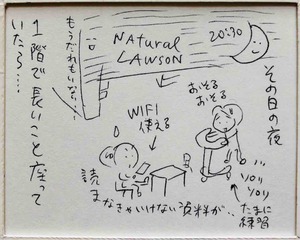 その日の夜
20:30
NATURAL
LAWSON
もうだれもいない…
1階で長いこと座って
いたら…
WIFI
使える
おそる
おそる
ソロリ
ソロリ
たまに
練習
読
まなきゃいけない資料が…